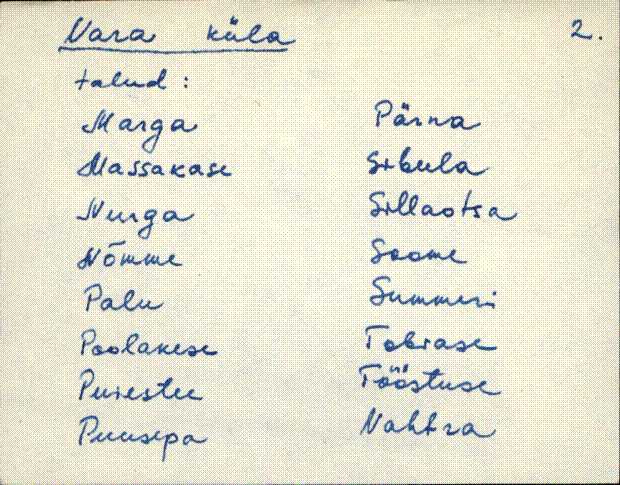 Vara küla 2.
talud:
Marga
Massakase
Nurga
Nõmme
Palu
Poolakese
Puiestee
Puusepa
Pärna
Sibula
Sillaotsa
Soome
Summeri
Tobiase
Tööstuse
Vahtra